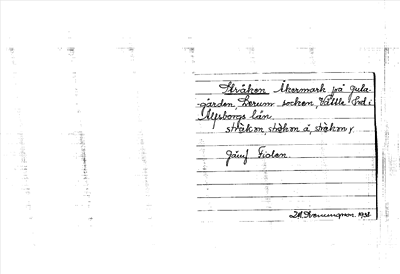 Stråken Åkermark på Gula-
gården, Lerum socken, Vättle hd i
Älfsborgs län.
stråkm, stråkm å, stråkmr
Jämf Fiolen
1931